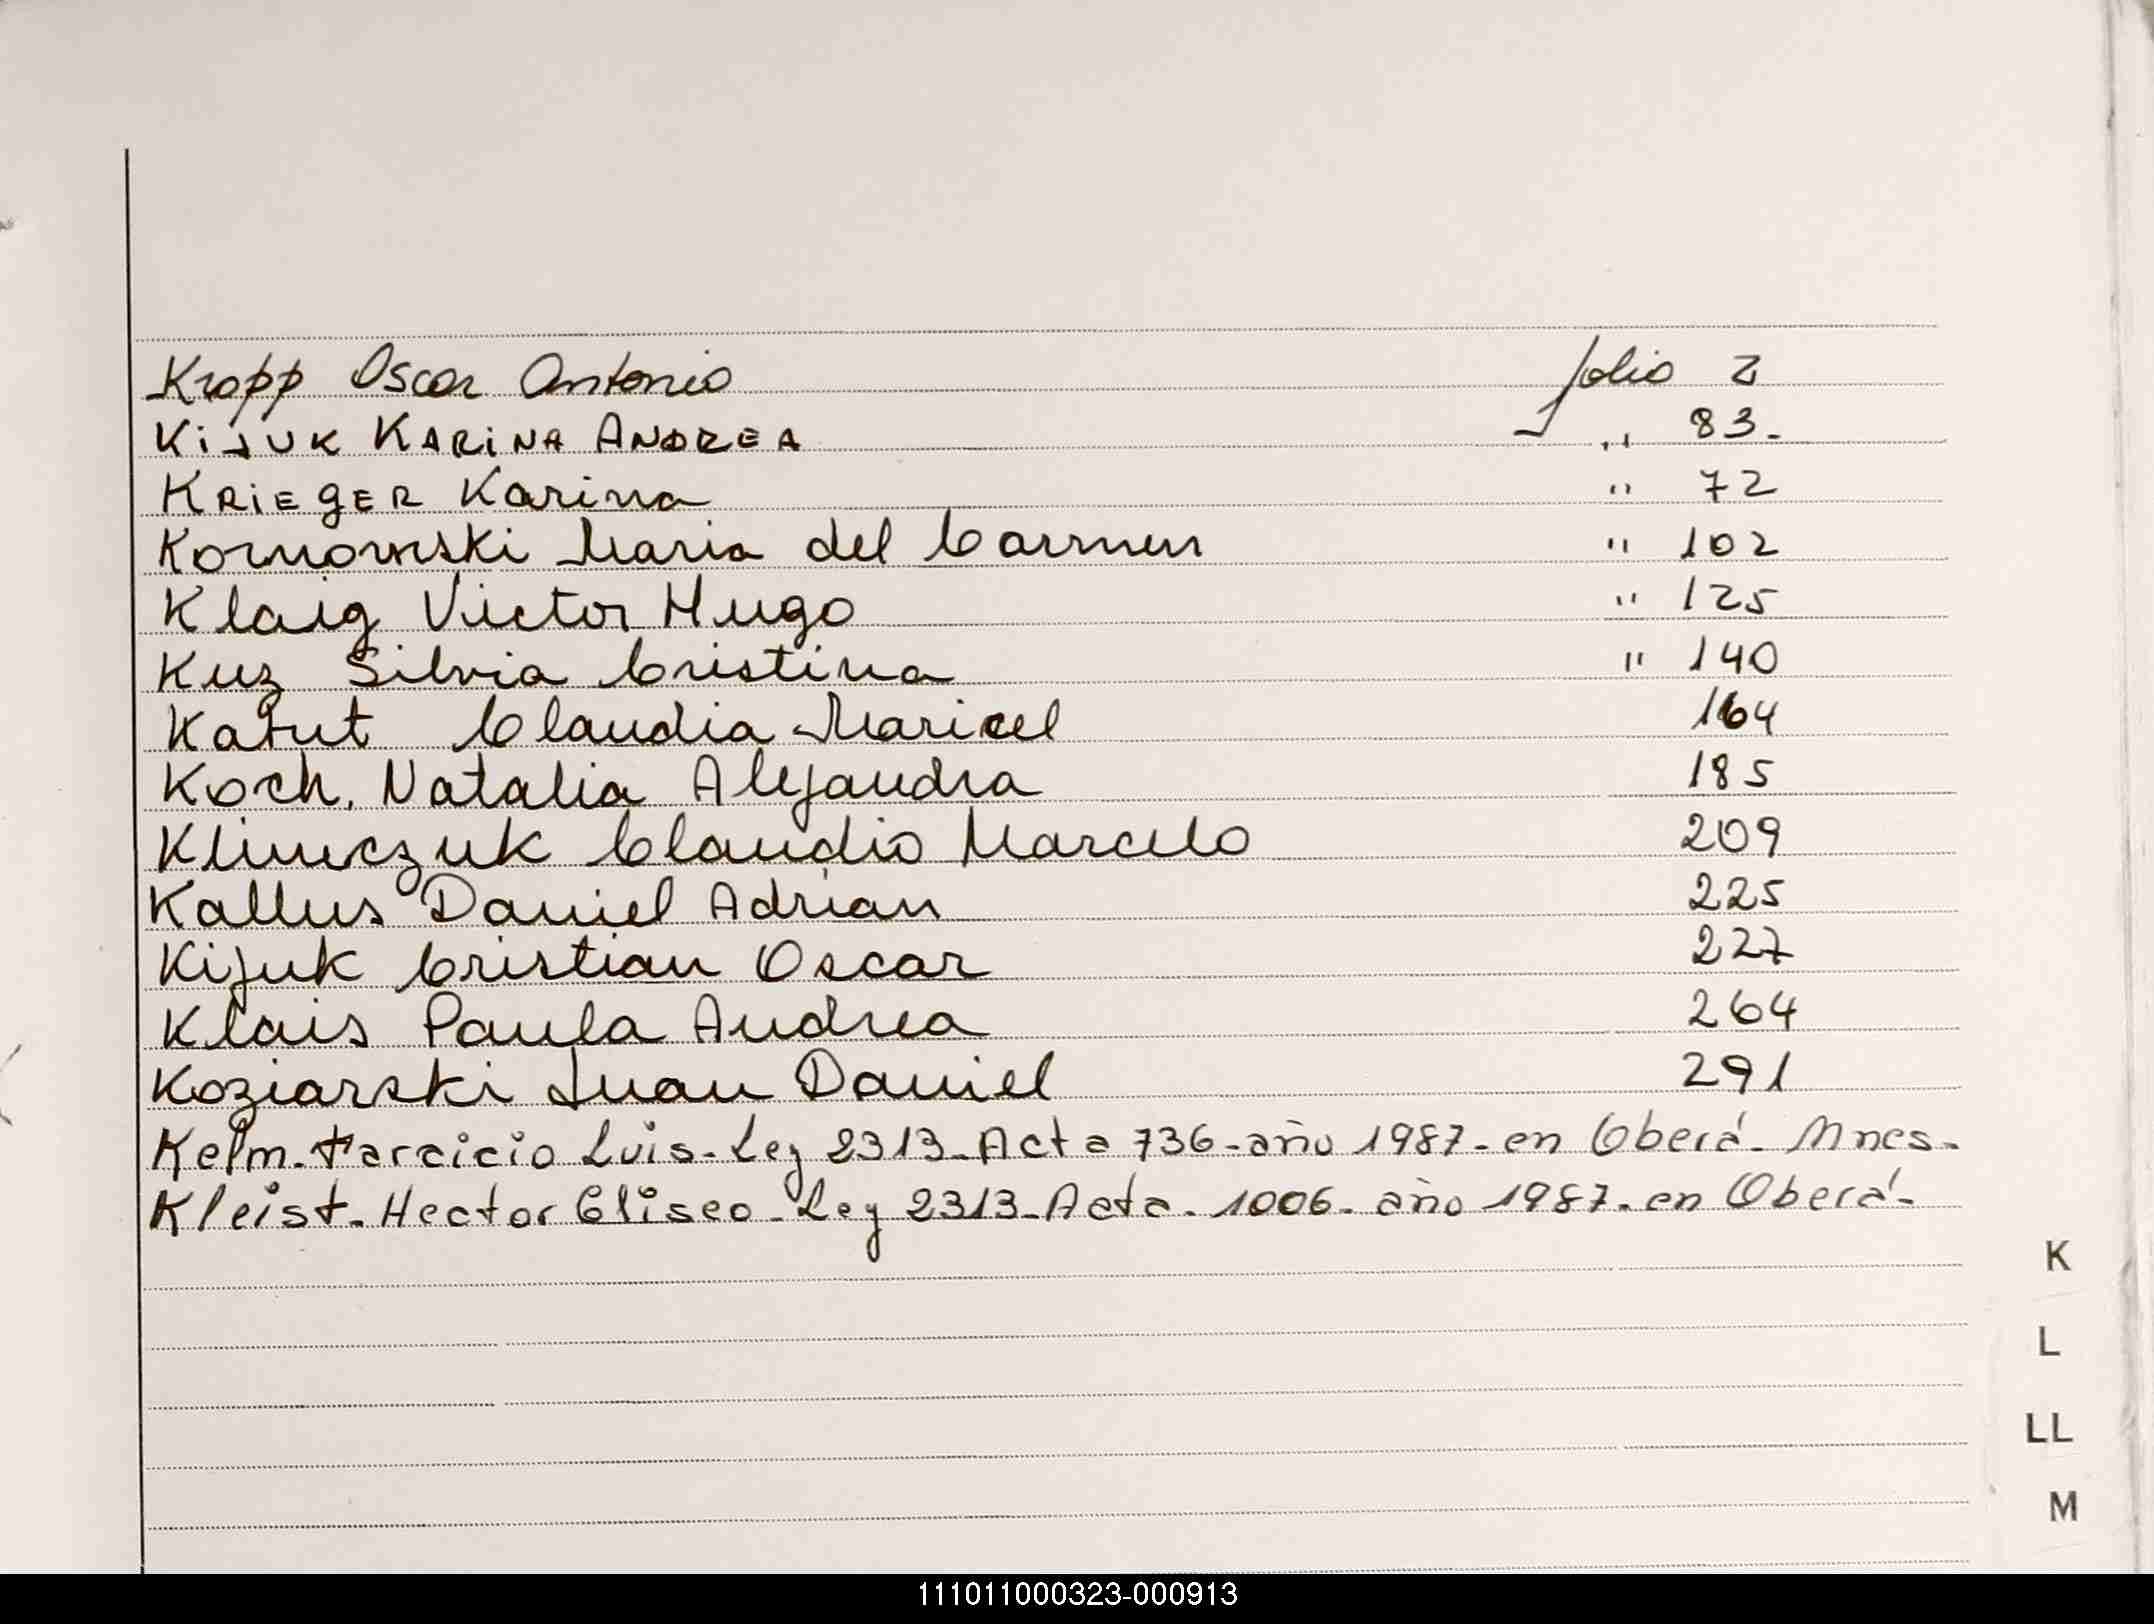 Kropp Oscar Antonio folio 2
KiJUK KARiNA ANDREA " 83-
KRiEgER Karina " 72
Kornowski Maria del Carmen " 102
Klaig Victor Hugo " 125
Kuz Silvia Cristina " 140
Katut Claudia Maricel 164
Koch, Natalia Alejandra 185
Klimczuk Claudio Marcelo 209
Kallus Daniel Adrian 225
Kijuk Cristian Oscar 227
Klais Paula Andrea 264
Koziarski Juan Daniel 291
Kelm- Tarcicio Luis- Ley 2313- Acta 736- año 1987- en Oberá- Mnes-
Kleist- Hector Eliseo- Ley 2313- Acta- 1006- año 1987- en Oberá-
K
L
LL
M
111011000323-000913